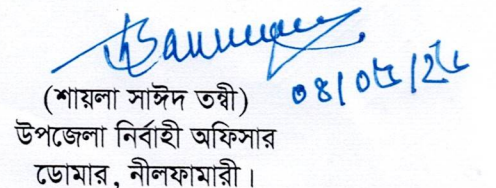 ০৪/০৫/২৫
(শায়লা সাঈদ তন্বী)
উপজেলা নির্বাহী অফিসার
ডোমার, নীলফামারী।